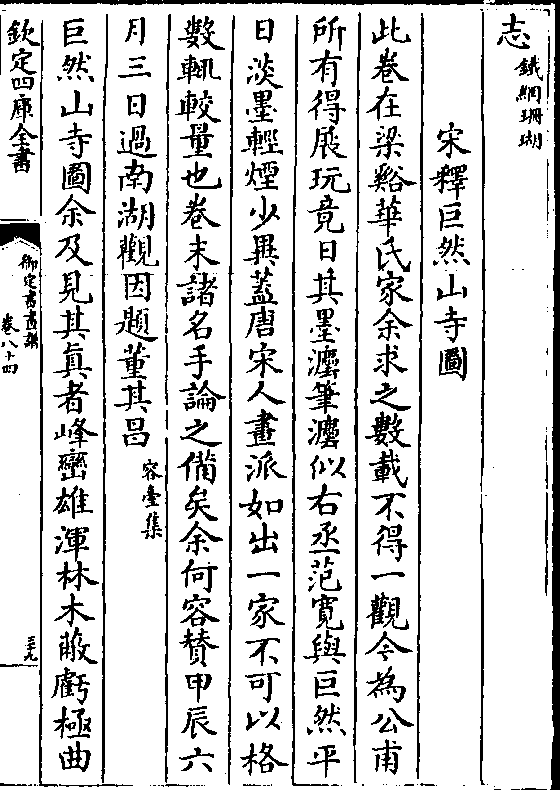 志 鐵網珊瑚
宋釋巨然山寺圖
此卷在梁谿華氏家余求之數載不得一觀今為公甫
所有得展玩竟日其墨灋筆灋似右丞范寬與巨然平
日淡墨輕煙少異蓋唐宋人畫派如出一家不可以格
數輒較量也卷末諸名手論之備矣余何容贊甲辰六
月三日過南湖觀因題董其昌 容臺集
巨然山寺圖余及見其真者峰巒雄渾林木蔽虧極曲
欽定四庫全書
御定書畫譜
卷八十四
三十九